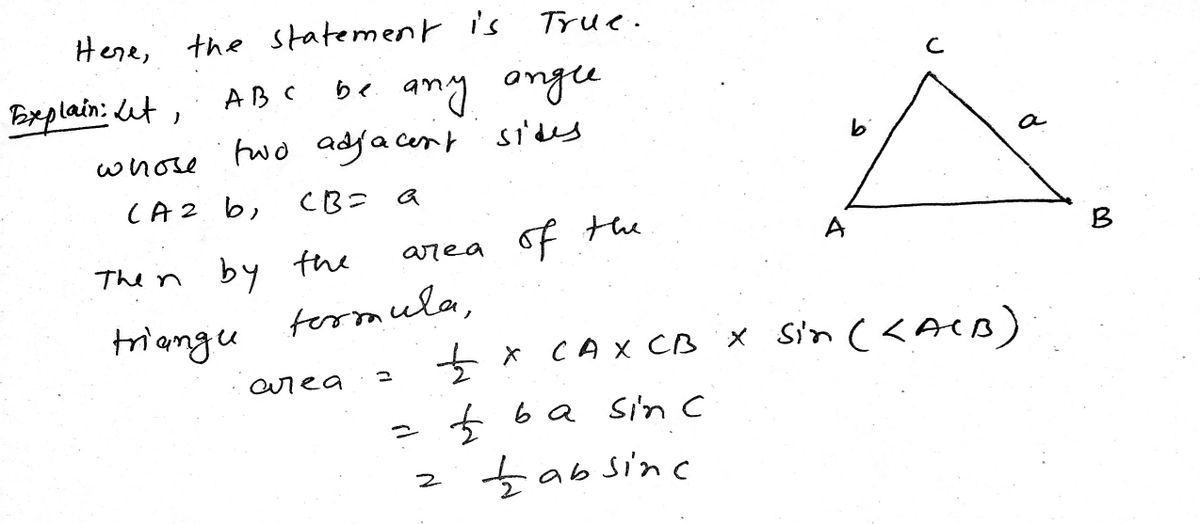 Here, the statement is True.
Explain: Let, ABC be any angle
whose two adjacent sides
CA = b, CB = a
Then by the area of the
triangle formula,
area = 1/2 × CA × CB × sin (<ACB)
= 1/2 b a sin C
= 1/2 ab sin C
C
b
a
A
B